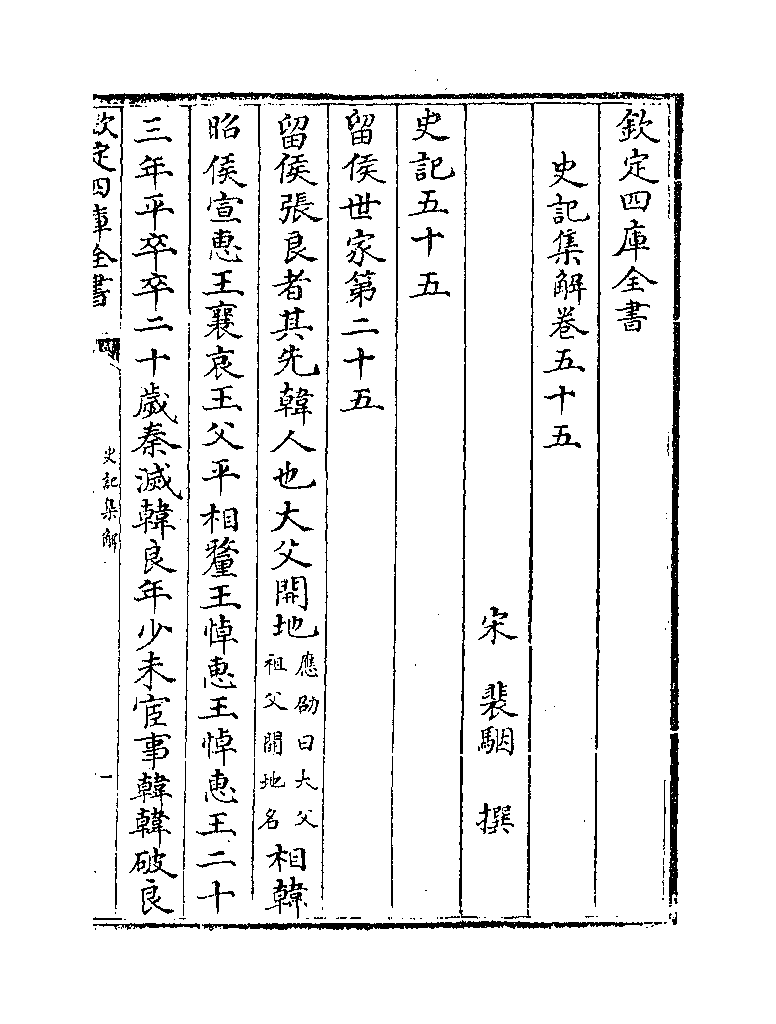 欽定四庫全書
史記集解卷五十五
宋　裴駰　撰
史記五十五
留侯世家第二十五
留侯張良者其先韓人也大父開地應劭曰大父祖父開地名相韓
昭侯宣惠王襄哀王父平相釐王悼惠王悼惠王二十
三年平卒卒二十歲秦滅韓良年少未宦事韓韓破良
欽定四庫全書
史記集解
一